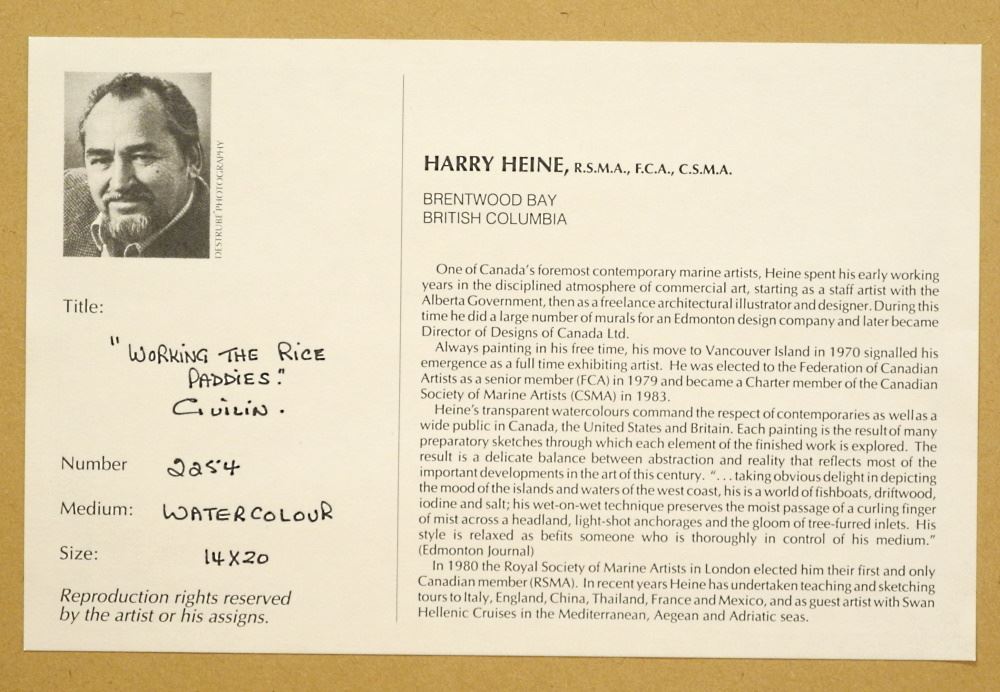 DESTRUBÉ PHOTOGRAPHY
Title:
"WORKING THE RICE
PADDIES."
GUILIN.
Number 2254
Medium: WATERCOLOUR
Size: 14X20
Reproduction rights reserved
by the artist or his assigns.
HARRY HEINE, R.S.M.A., F.C.A., C.S.M.A.
BRENTWOOD BAY
BRITISH COLUMBIA
One of Canada's foremost contemporary marine artists, Heine spent his early working
years in the disciplined atmosphere of commercial art, starting as a staff artist with the
Alberta Government, then as a freelance architectural illustrator and designer. During this
time he did a large number of murals for an Edmonton design company and later became
Director of Designs of Canada Ltd.
Always painting in his free time, his move to Vancouver Island in 1970 signalled his
emergence as a full time exhibiting artist. He was elected to the Federation of Canadian
Artists as a senior member (FCA) in 1979 and became a Charter member of the Canadian
Society of Marine Artists (CSMA) in 1983.
Heine's transparent watercolours command the respect of contemporaries as well as a
wide public in Canada, the United States and Britain. Each painting is the result of many
preparatory sketches through which each element of the finished work is explored. The
result is a delicate balance between abstraction and reality that reflects most of the
important developments in the art of this century. "...taking obvious delight in depicting
the mood of the islands and waters of the west coast, his is a world of fishboats, driftwood,
iodine and salt; his wet-on-wet technique preserves the moist passage of a curling finger
of mist across a headland, light-shot anchorages and the gloom of tree-furred inlets. His
style is relaxed as befits someone who is thoroughly in control of his medium."
(Edmonton Journal)
In 1980 the Royal Society of Marine Artists in London elected him their first and only
Canadian member (RSMA). In recent years Heine has undertaken teaching and sketching
tours to Italy, England, China, Thailand, France and Mexico, and as guest artist with Swan
Hellenic Cruises in the Mediterranean, Aegean and Adriatic seas.